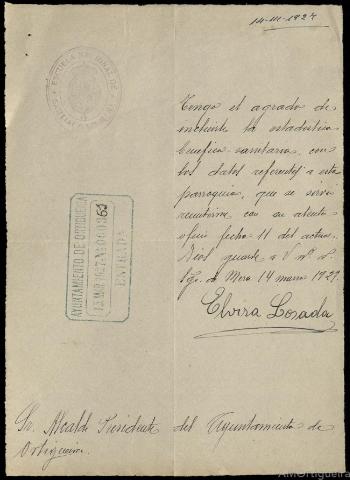 14-III-1927
ESCUELA NACIONAL DE
Tengo el agrado de
incluirle la estadística
benéfica-sanitaria, con
los datos referentes a esta
parroquia, que se sirvió
remitirme con su atento
oficio fecha 11 del actual.
Dios guarde a V. m. a.
Sgo. de Mera 14 marzo 1927.
Elvira Losada
AYUNTAMIENTO DE ORTIGUEIRA
15.MAR.1927-Nº000363
ENTRADA
Sr. Alcalde Presidente del Ayuntamiento de
Ortigueira.
AMOrtigueira